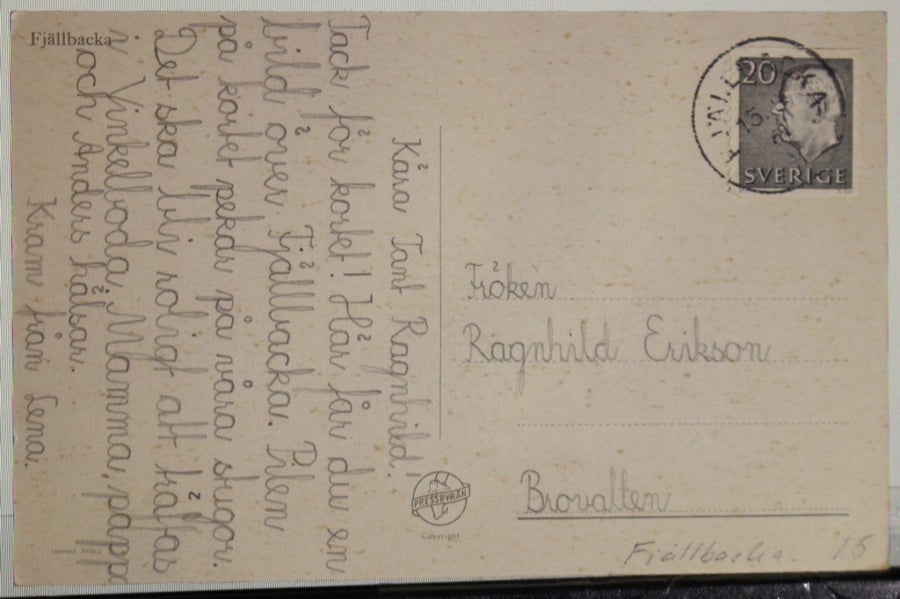 Fjällbacka
Kära Tant Ragnhild!
Tack för kortet! Här får du en
bild över Fjällbacka. Pilen
på kortet pekar på våra stugor.
Det ska bli roligt att träffas
i Vinkelboda. Mamma, papp
och Anders hälsar.
Kram från Lena.
20
SVERIGE
Fröken
Ragnhild Erikson
Brovallen
PRESSBYRÅN
Copyright
Fjällbacka. 15